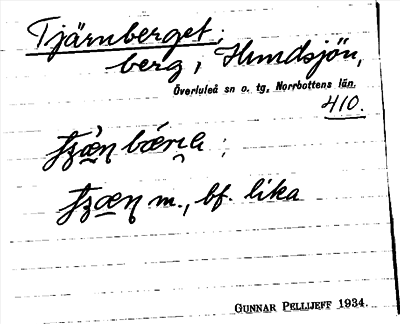 Tjärnberget,
berg, Hundsjön,
Överluleå sn o. tg, Norrbottens län.
410.
m., bf. lika
GUNNAR PELLIJEFF 1934.